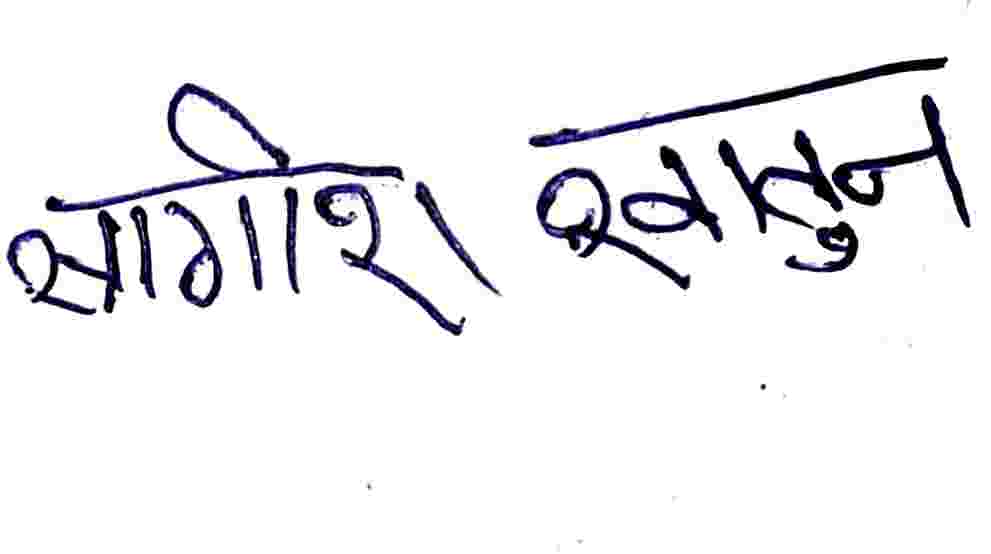 सागीरा खातुन